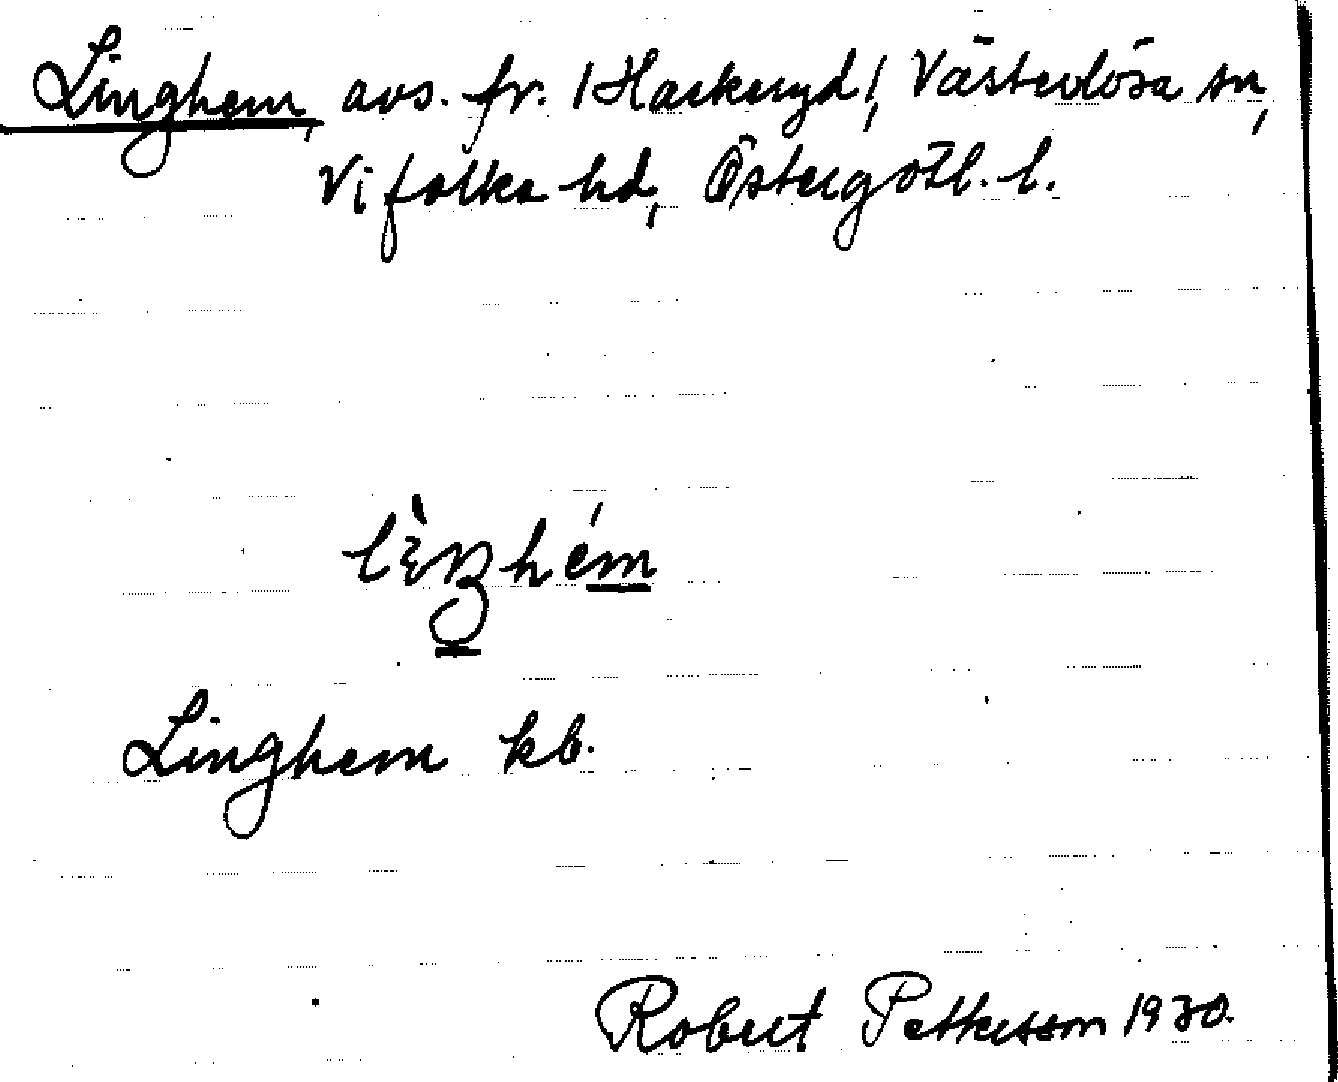 Linghem, avs. fr. 1 Hackeryd 1, Västerlösa sn,
Vifolka hd, Östergötl. l.
Linghem kb.
Robert Pettersson 1930.